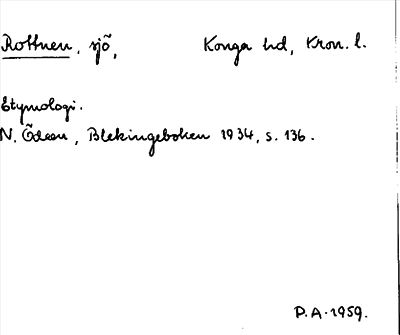 Rottnen, sjö, Konga hd, Kron. l.
Etymologi.
N. Ödeen, Blekingeboken 1934, s. 136.
P.A. 1959.